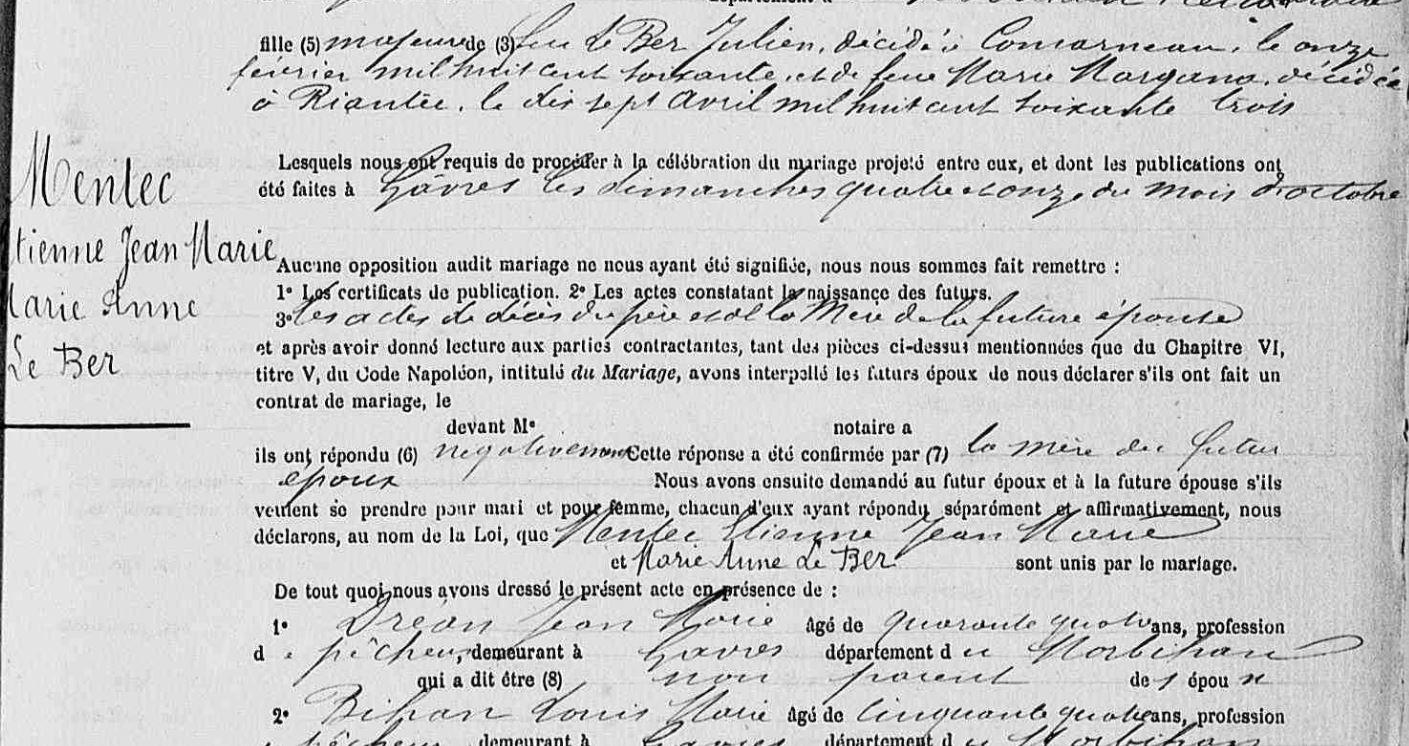 fille (5) majeure de (3) feu Le Ber Julien, décédé à Concarneau, le onze
février mil huit cent soixante, et de feue Marie Margana, décédée
à Riantec, le dix sept Avril mil huit cent soixante trois
Lesquels nous ont requis de procéder à la célébration du mariage projeté entre eux, et dont les publications ont
été faites à Gâvres les dimanches quatre et onze du mois d'octobre
Mentec
Etienne Jean Marie
Marie Anne
Le Ber
Aucune opposition audit mariage ne nous ayant été signifiée, nous nous sommes fait remettre :
1° Les certificats de publication. 2° Les actes constatant la naissance des futurs.
3° Les actes de décès du père et de la Mère de la future épouse
et après avoir donné lecture aux parties contractantes, tant des pièces ci-dessus mentionnées que du Chapitre VI,
titre V, du Code Napoléon, intitulé du Mariage, avons interpellé les futurs époux de nous déclarer s'ils ont fait un
contrat de mariage, le
devant Me notaire a
ils ont répondu (6) négativement Cette réponse a été confirmée par (7) la mère du futur
époux Nous avons ensuite demandé au futur époux et à la future épouse s'ils
veulent se prendre pour mari et pour femme, chacun d'eux ayant répondu séparément et affirmativement, nous
déclarons, au nom de la Loi, que Mentec Etienne Jean Marie
et Marie Anne Le Ber sont unis par le mariage.
De tout quoi nous avons dressé le présent acte en présence de :
1° Dréan Jean Marie âgé de quarante quatre ans, profession
de pêcheur, demeurant à Gavres département du Morbihan
qui a dit être (8) non parent des époux
2° Bihan Louis Marie âgé de cinquante quatre ans, profession
pêcheur demeurant à Gavres département du Morbihan